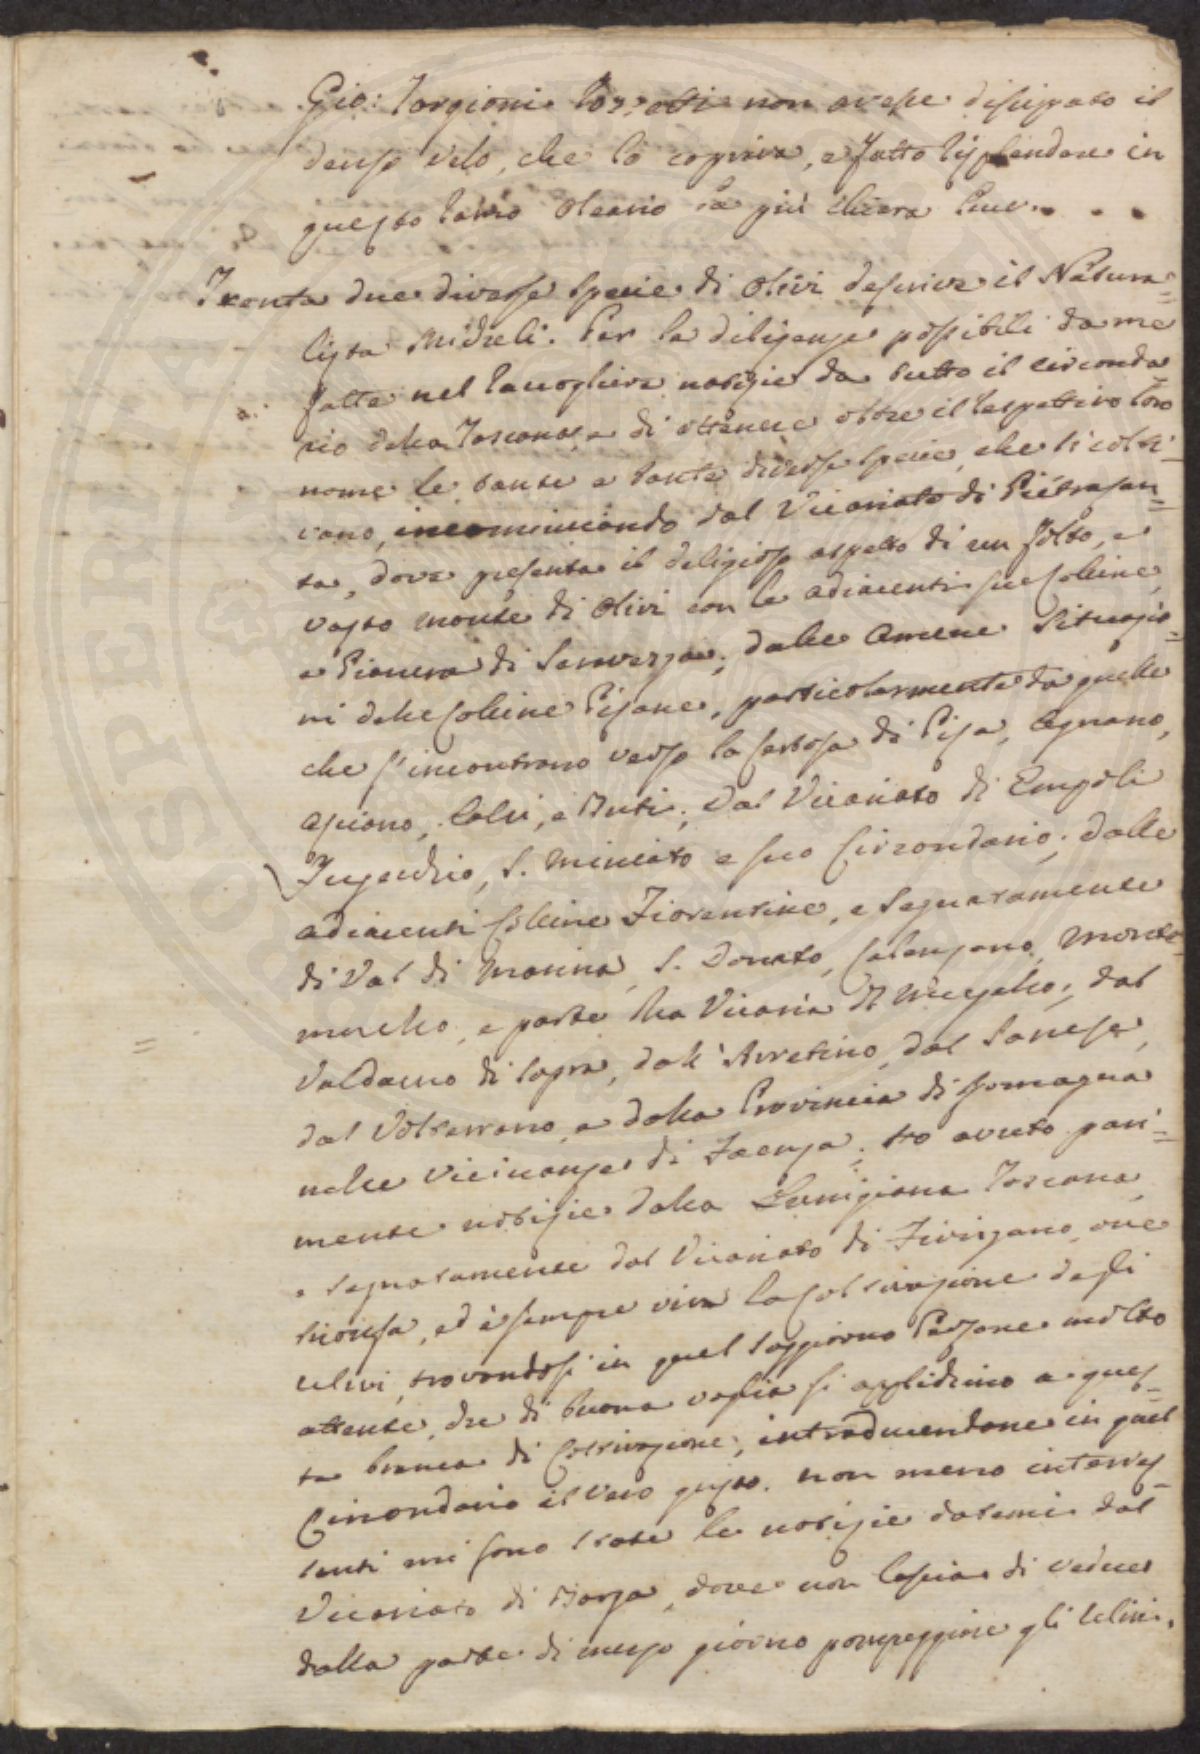 Gio: Targioni Tozzetti non avesse dissipato il
denso velo, che lo copriva, e fatto risplendere in
questo ramo Oleario la più chiara luce. . .
Trenta due diverse specie di Olivi descrive il Natura=
lista Micheli. Per le diligenze possibili da me
fatte nel raccogliere notizie da tutto il circonda=
rio della Toscana, e di ottenere oltre il respettivo loro
nome le tante e tante diverse specie, che si colti=
vano, incominciando dal Vicariato di Pietrasan=
ta, dove presenta il delizioso aspetto di un folto, e
vasto monte di Olivi con le adiacenti sue Colline,
e Pianura di Seravezza; dalle Amene Situazio=
ni delle Colline Pisane, particolarmente da quelle
che s'incontrano verso la Certosa di Pisa, Agnano,
Asciano, Calci, e Buti; dal Vicariato di Empoli
Fucecchio, S. Miniato e suo Circondario; dalle
adiacenti Colline Fiorentine, e segnatamente
di Val di Marina, S. Donato, Calenzano, Monte
murello, e parte della Vicaria di Mugello; dal
Valdarno di sopra, dall'Arretino, dal Sanese,
dal Volterrano, e dalla Provincia di Romagna
nelle vicinanze di Faenza; Ho avuto pari=
mente notizie dalla Lunigiana Toscana,
e segnatamente dal Vicariato di Fivizzano, ove
, ed è sempre viva la Coltivazione degli
ulivi, trovandosi in quel soggiorno Persone molto
attente, che di buona voglia si applichino a ques=
ta branca di Coltivazione, introducendone in quel
Circondario il vero gusto. Non meno interes=
santi mi sono state le notizie datemi dal
Vicariato di Barga, dove non lascia di vedersi
dalla parte di mezzo giorno pompeggiare gli Ulivi.